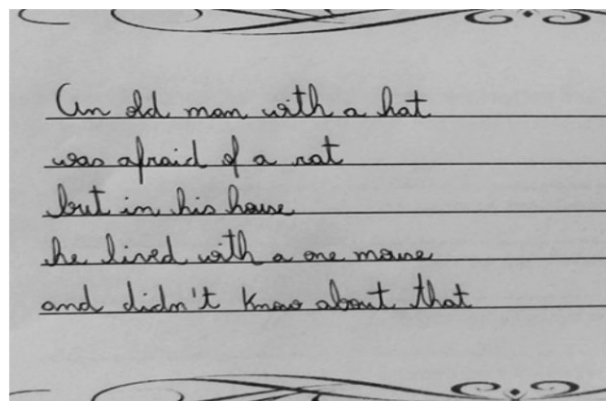 An old man with a hat
was afraid of a rat
but in his house
he lived with a one mouse
and didn't know about that